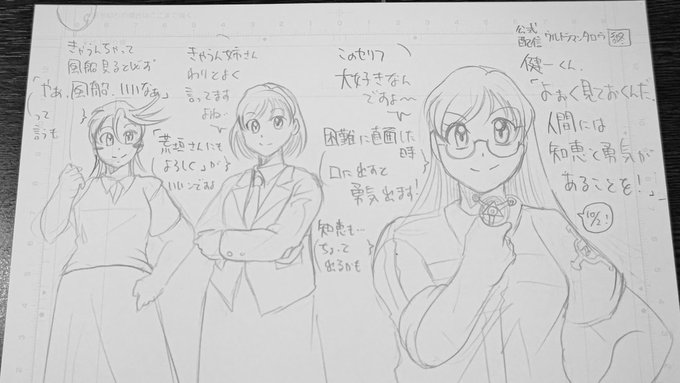 公式
配信 ウルトラマンタロウ 終
健一くん、
「よぉく見ておくんだ、
人間には
知恵と勇気が
あることを!」
(10/2!)
このセリフ
大好きなん
ですよ〜
困難に直面した
時
口に出すと
勇気出ます!
知恵も…
ちょって
出るかも
きゃうん姉さん
わりとよく
言ってます
よね…
「荒垣さんにも
よろしく」が
いいンですね
きゃうんちゃって
風船見るとじず
「やぁ、風船、いいなぁ」
って
言うも